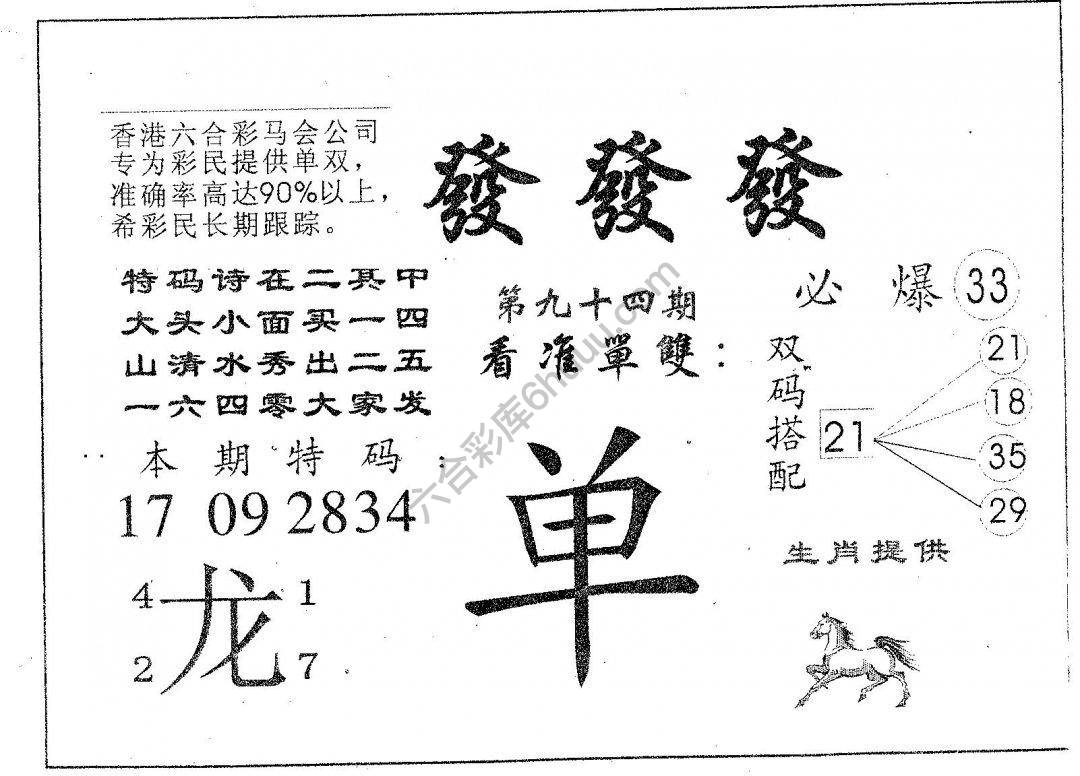 香港六合彩马会公司
专为彩民提供单双，
准确率高达90%以上，
希彩民长期跟踪。
發發發
特码诗在二其中
大头小面买一四
山清水秀出二五
一六四零大家发
第九十四期
看准單雙：
必爆33
双码搭配
21
21
18
35
29
本期特码：
17 09 2834
单
生肖提供
4 龙 1
2 7
六合彩库6huuu.com